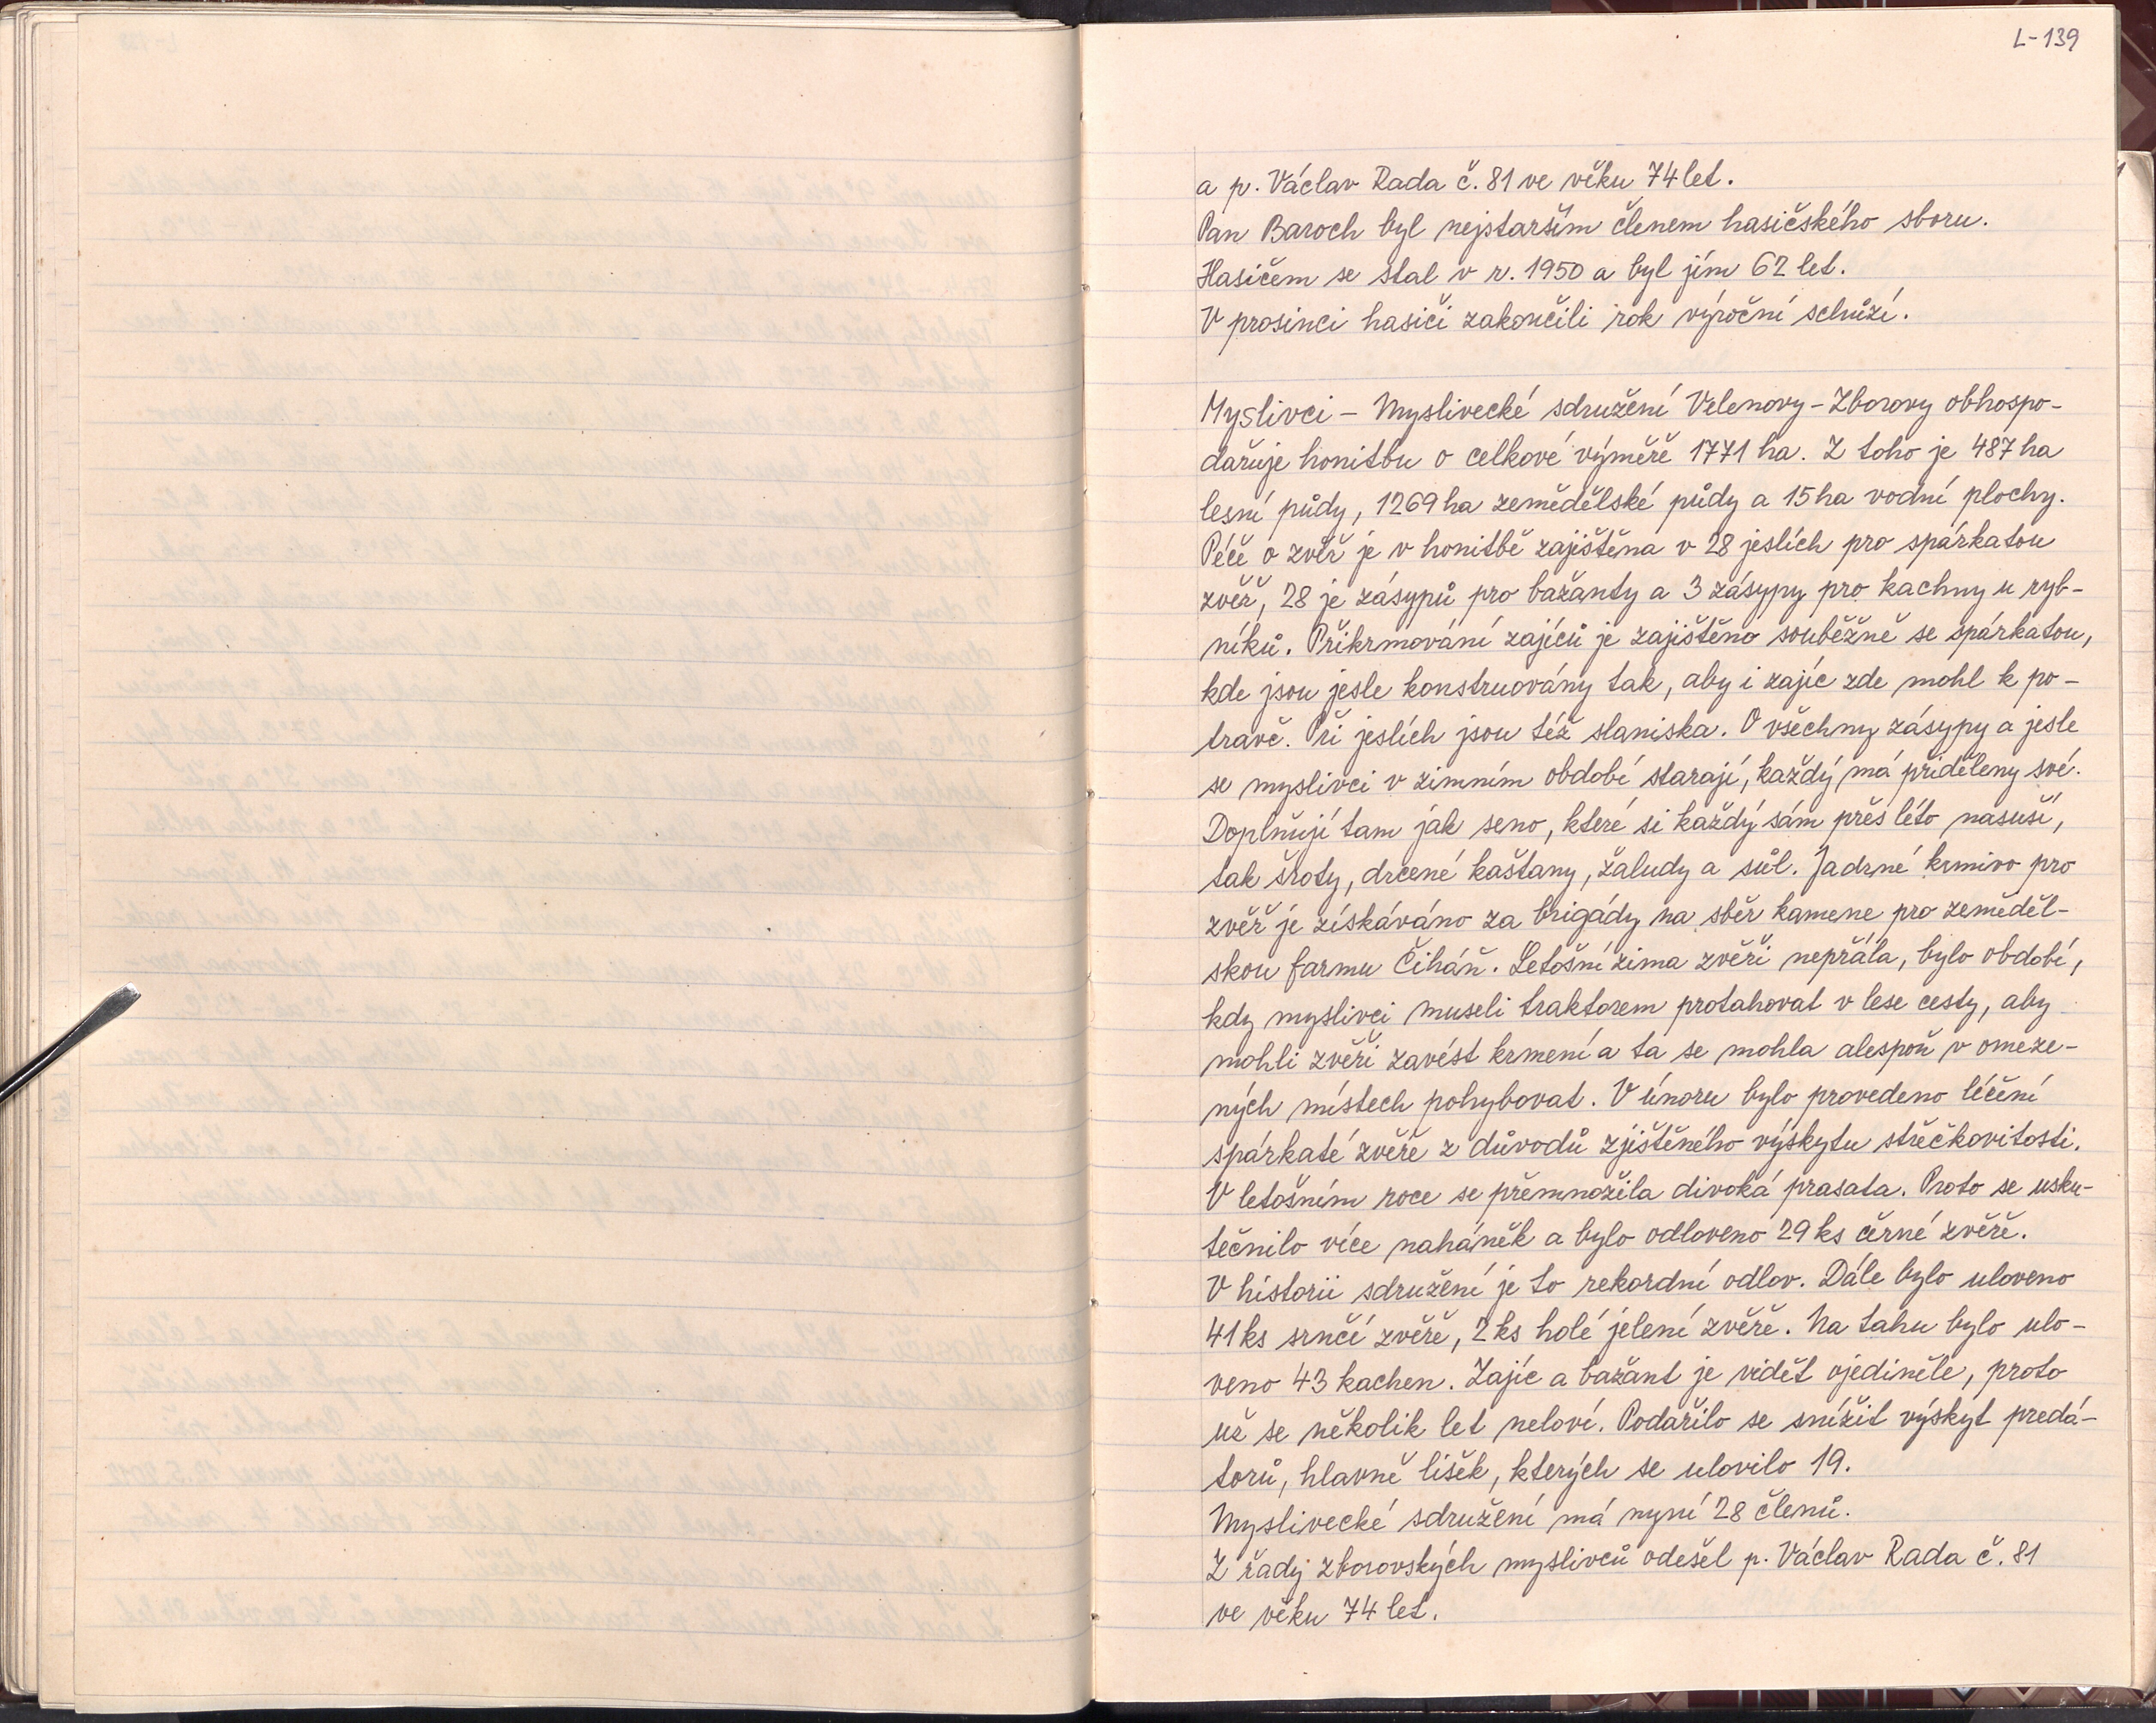 L-139
a p. Václav Rada č. 81 ve věku 74 let.
Pan Baroch byl nejstarším členem hasičského sboru.
Hasičem se stal v r. 1950 a byl jím 62 let.
V prosinci hasiči zakončili rok výroční schůzí.
Myslivci – Myslivecké sdružení Velenovy - Zborovy obhospo-
dařuje honitbu o celkové výměře 1771 ha. Z toho je 487 ha
lesní půdy, 1269 ha zemědělské půdy a 15 ha vodní plochy.
Péče o zvěř je v honitbě zajištěna v 28 jeslích pro spárkatou
zvěř, 28 je zásypů pro bažanty a 3 zásypy pro kachny u ryb-
níků. Přikrmování zajíců je zajištěno souběžně se spárkatou,
kde jsou jesle konstruovány tak, aby i zajíc zde mohl k po-
travě. Při jeslích jsou též slaniska. O všechny zásypy a jesle
se myslivci v zimním období starají, každý má přiděleny své.
Doplňují tam jak seno, které si každý sám přes léto nasuší,
tak šroty, drcené kaštany, žaludy a sůl. Jadrné krmivo pro
zvěř je získáváno za brigády na sběr kamene pro zeměděl-
skou farmu Čiháň. Letošní zima zvěři nepřála, bylo období,
kdy myslivci museli traktorem protahovat v lese cesty, aby
mohli zvěři zavést krmení a ta se mohla alespoň v omeze-
ných místech pohybovat. V únoru bylo provedeno léčení
spárkaté zvěře z důvodů zjištěného výskytu střečkovitosti.
V letošním roce se přemnožila divoká prasata. Proto se usku-
tečnilo více naháněk a bylo odloveno 29 ks černé zvěře.
V historii sdružení je to rekordní odlov. Dále bylo uloveno
41 ks srnčí zvěře, 2 ks holé jelení zvěře. Na tahu bylo ulo-
veno 43 kachen. Zajíc a bažant je vidět ojediněle, proto
už se několik let neloví. Podařilo se snížit výskyt predá-
torů, hlavně lišek, kterých se ulovilo 19.
Myslivecké sdružení má nyní 28 členů.
Z řady zborovských myslivců odešel p. Václav Rada č. 81
ve věku 74 let.